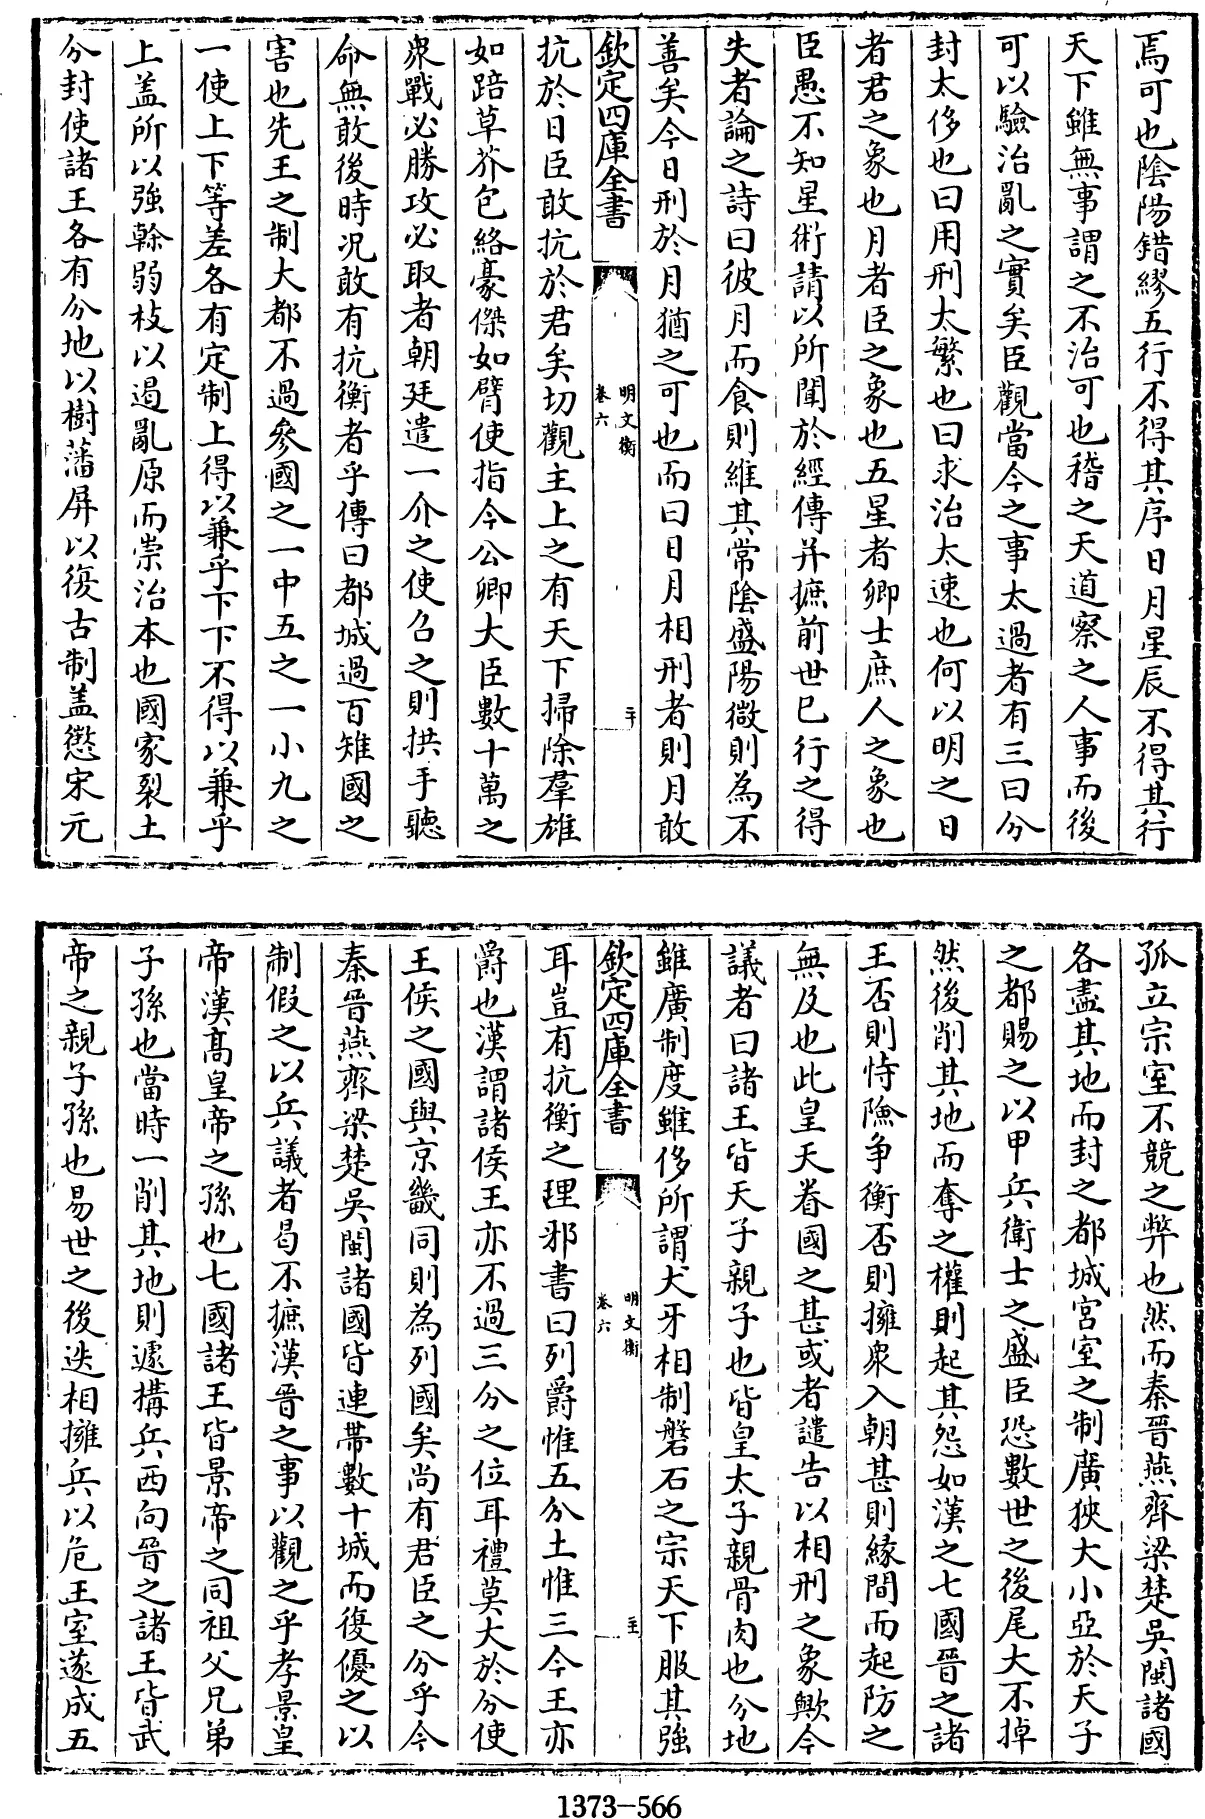 焉可也陰陽錯繆五行不得其序日月星辰不得其行
天下雖無事謂之不治可也稽之天道察之人事而後
可以驗治亂之實矣臣觀當今之事太過者有三曰分
封太侈也曰用刑太繁也曰求治太速也何以明之日
者君之象也月者臣之象也五星者卿士庶人之象也
臣愚不知星術請以所聞於經傳并摭前世已行之得
失者論之詩曰彼月而食則維其常陰盛陽微則為不
善矣今日刑於月猶之可也而曰日月相刑者則月敢
欽定四庫全書
明文衡
卷六
二十
抗於日臣敢抗於君矣切觀主上之有天下掃除羣雄
如踣草芥包絡豪傑如臂使指今公卿大臣數十萬之
衆戰必勝攻必取者朝廷遣一介之使召之則拱手聽
命無敢後時况敢有抗衡者乎傳曰都城過百雉國之
害也先王之制大都不過參國之一中五之一小九之
一使上下等差各有定制上得以兼乎下下不得以兼乎
上盖所以強榦弱枝以遏亂原而崇治本也國家裂土
分封使諸王各有分地以樹藩屏以復古制盖懲宋元
孤立宗室不競之弊也然而秦晉燕齊梁楚吳閩諸國
各盡其地而封之都城宮室之制廣狹大小亞於天子
之都賜之以甲兵衛士之盛臣恐數世之後尾大不掉
然後削其地而奪之權則起其怨如漢之七國晉之諸
王否則恃險争衡否則擁衆入朝甚則緣間而起防之
無及也此皇天眷國之甚或者譴告以相刑之象歟今
議者曰諸王皆天子親子也皆皇太子親骨肉也分地
雖廣制度雖侈所謂犬牙相制磐石之宗天下服其強
欽定四庫全書
明文衡
卷六
耳豈有抗衡之理邪書曰列爵惟五分土惟三今王亦
爵也漢謂諸侯王亦不過三分之位耳禮莫大於分使
王侯之國與京畿同則為列國矣尚有君臣之分乎今
秦晉燕齊梁楚吳閩諸國皆連帶數十城而復優之以
制假之以兵議者曷不摭漢晉之事以觀之乎孝景皇
帝漢髙皇帝之孫也七國諸王皆景帝之同祖父兄弟
子孫也當時一削其地則遽構兵西向晉之諸王皆武
帝之親子孫也易世之後迭相擁兵以危王室遂成五
1373-566